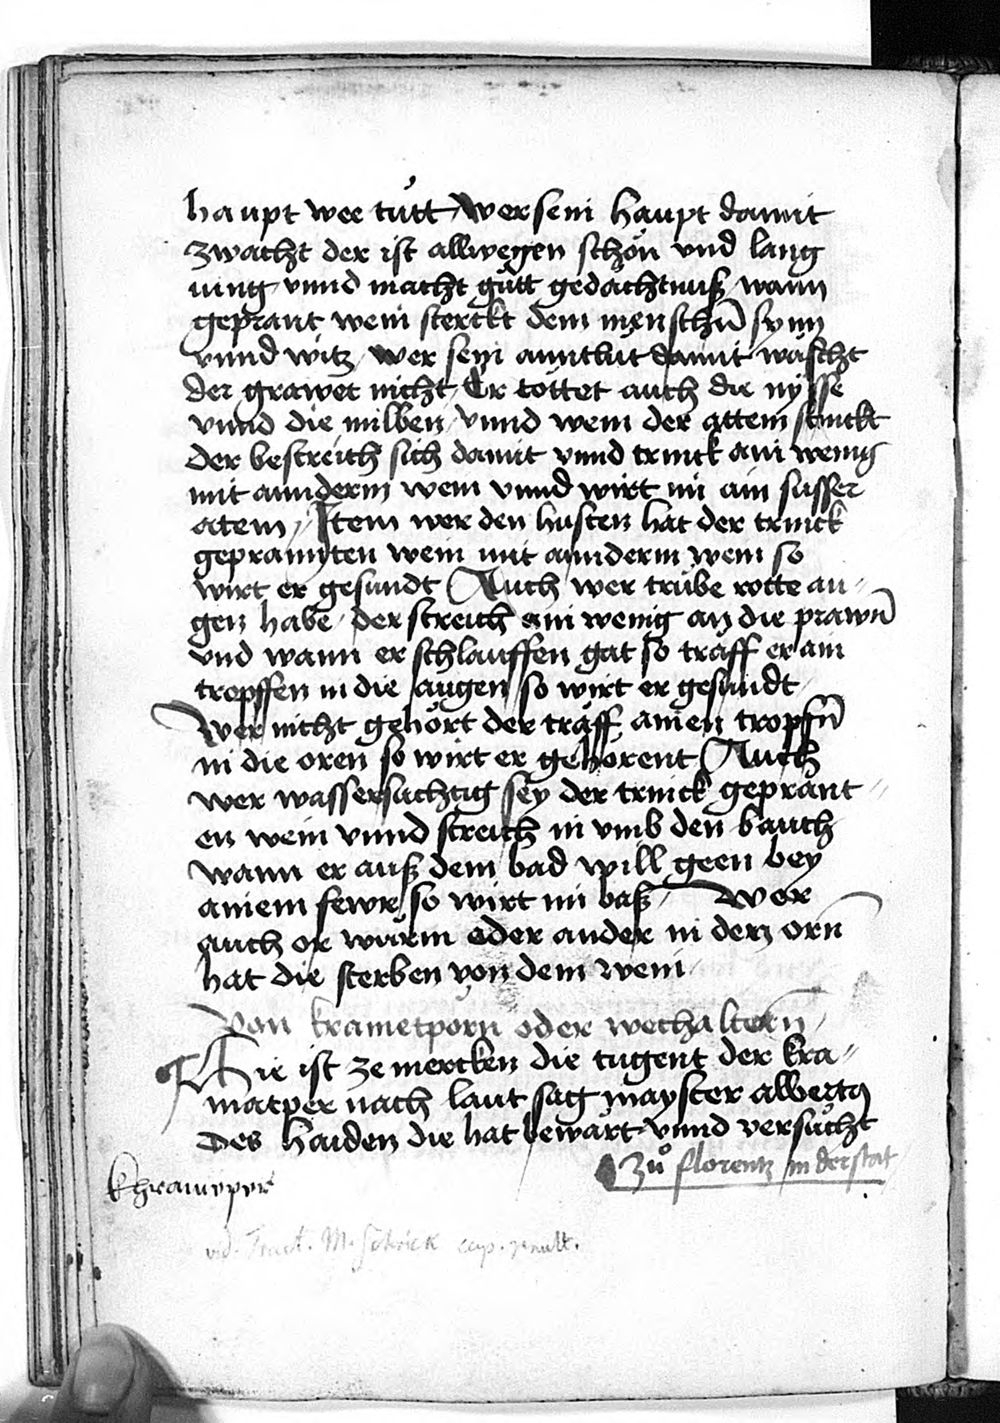 haupt wee tůtt Wer sein haupt damit
zwacht der ist allwegen schön vnd lang
iung vnnd macht gůtt gedächtnuß wann
geprant wein sterckt dem menschñ synn
vnnd witz wer sein anntlut damit wäscht
der grawet nicht Er töttet auch die nysse
vnnd die milben vnnd wem der attem stinckt
der bestreich sich damit vnnd trinck ain wenig
mit annderm wein vnnd wirt im ain süsser
atem / Item wer den husten hat der trinck
geprannten wein mit annderm wein so
wirt er gesundt Auch wer trübe rotte au〃
gen habe der streich ain wenig an die prawñ
vnd wann er schlauffen gat so träff er ain
tropffen in die augen so wirt er gesundt
Wer nicht gehört der träff ainen tropfñ
in die oren so wirt er gehorent Auch
wer wassersüchtig sey der trinck geprant〃
en wein vnnd streich in vmb den bauch
wann er auß dem bad will geen bey
ainem fewr so wirt im baß / Wer
auch or würm oder ander in den orñ
hat die sterben von dem wein
Von krametporn oder wechaltern
Hie ist ze mercken die tugent der kra〃
matper nach laut sag mayster albertus
des haiden die hat bewärt vnnd versůcht
Zů florentz in der stat
khramepper
vid. Tract. M. Schrick cap. penult.